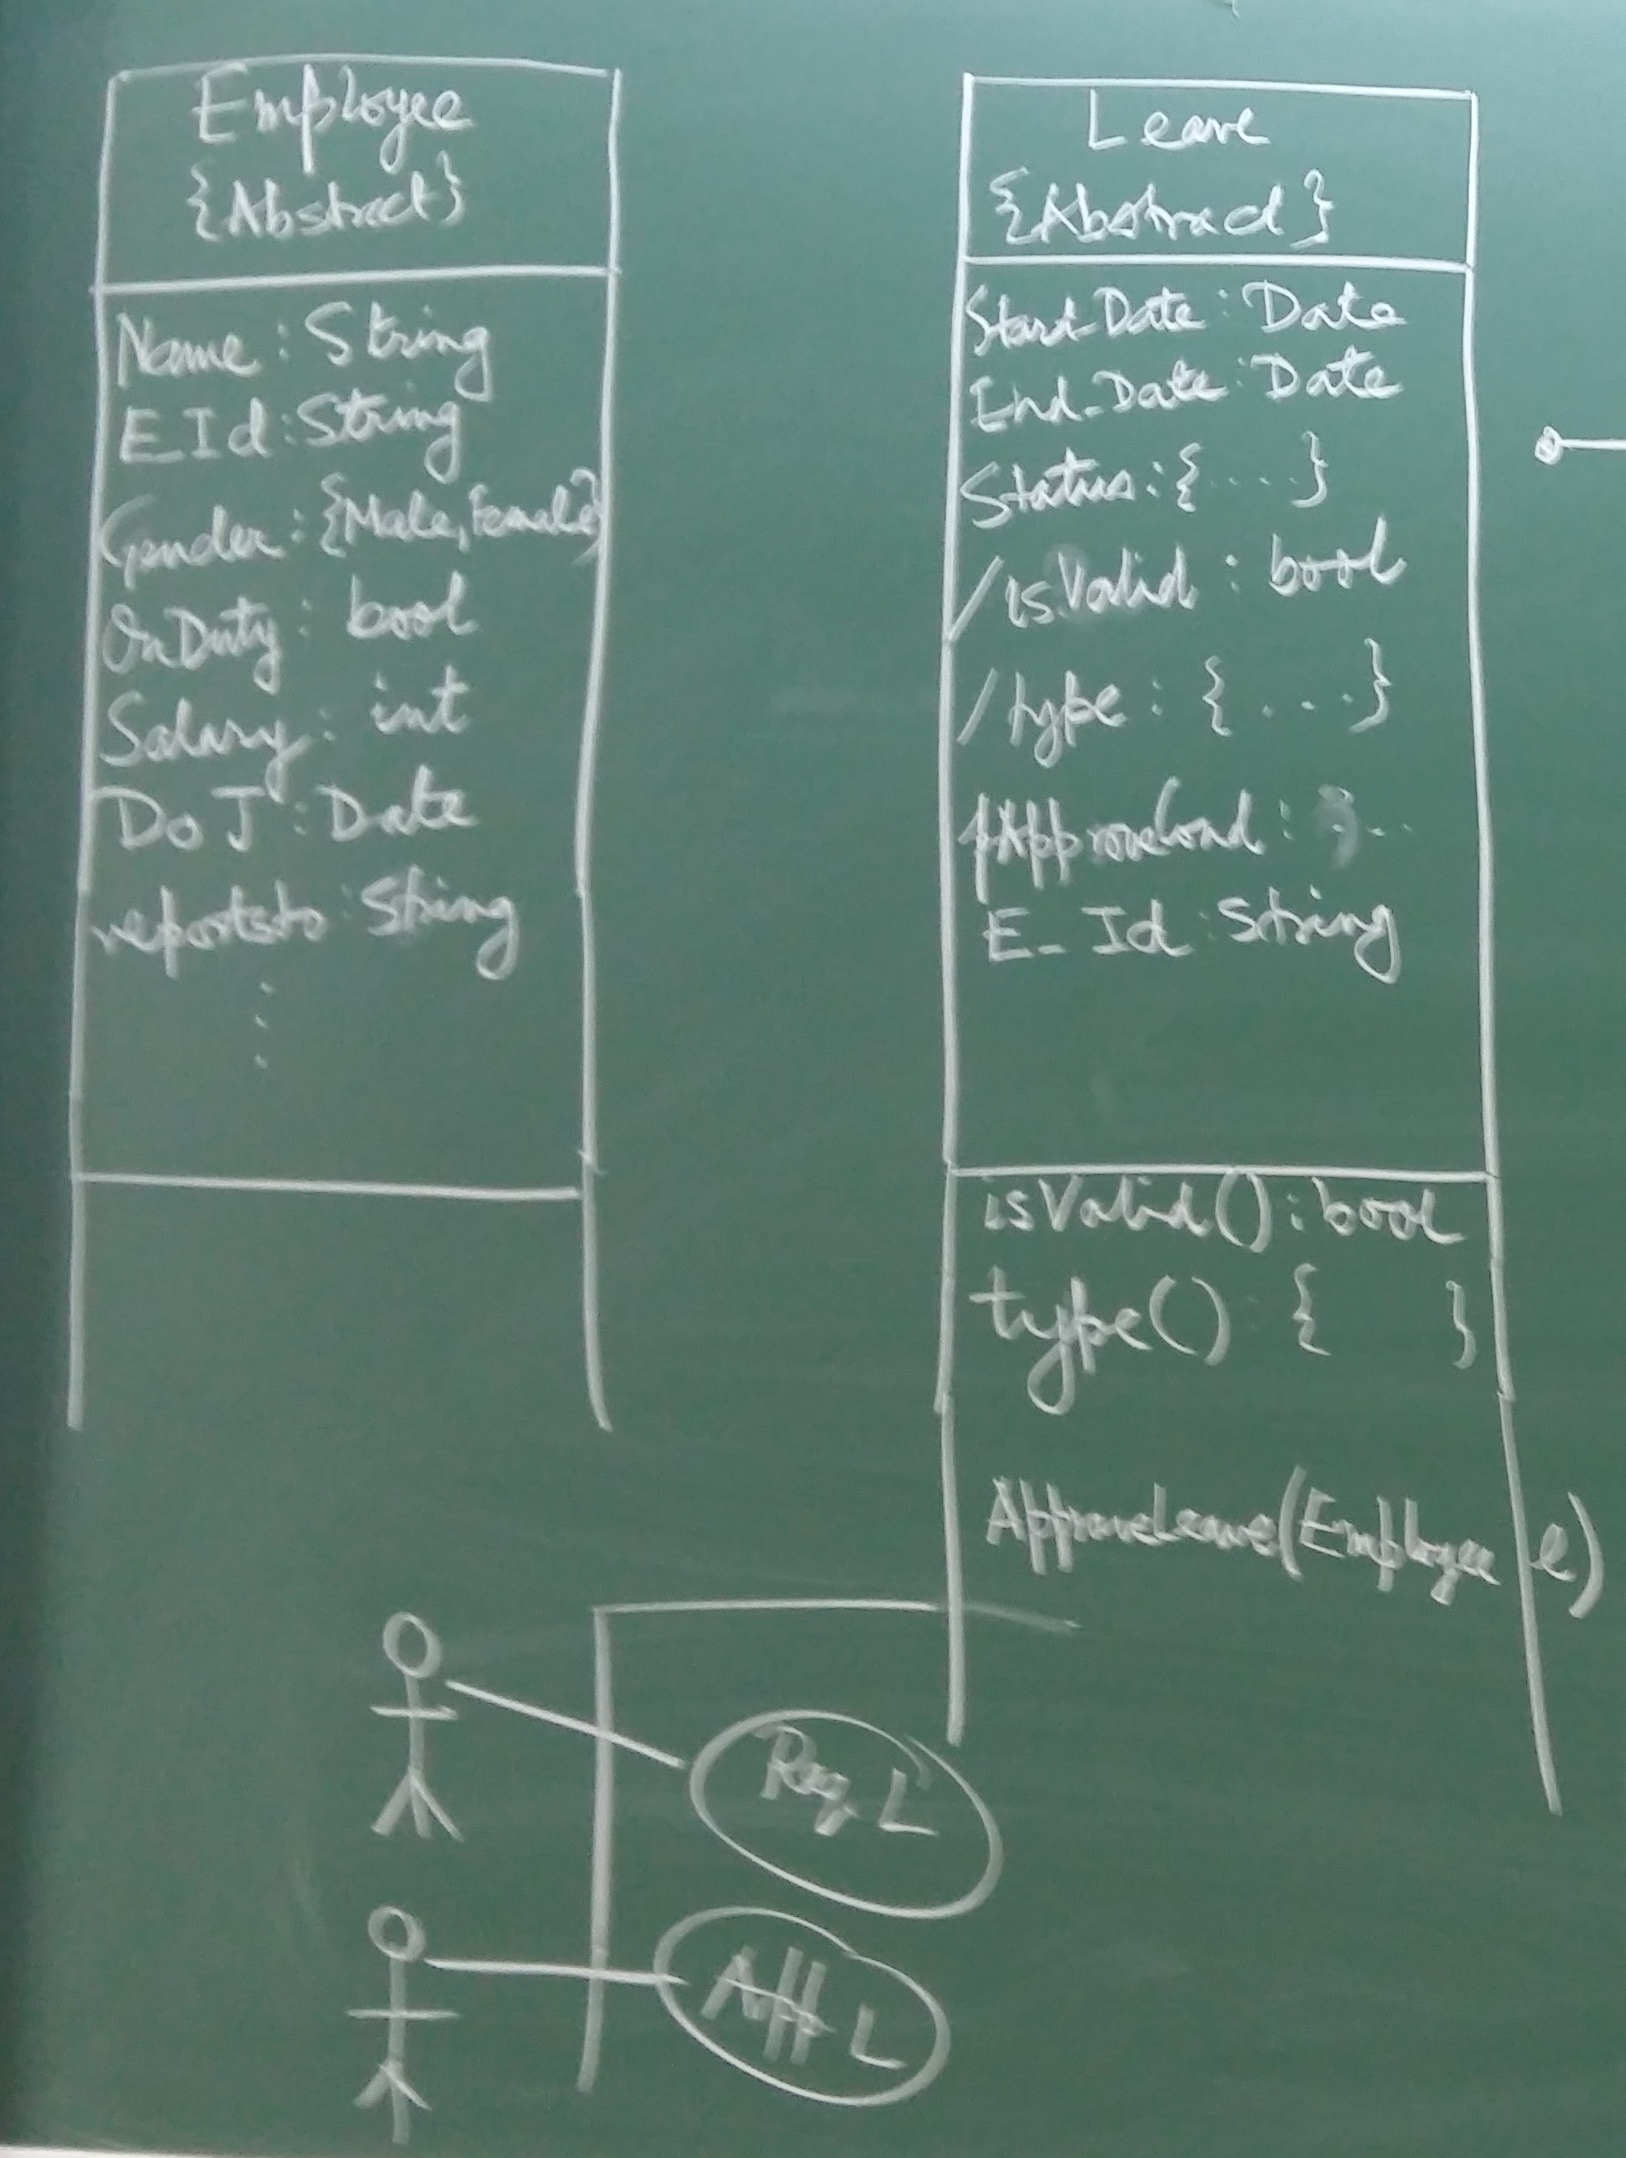 Employee
{Abstract}
Name : String
E Id : String
Gender : {Male, Female}
OnDuty : bool
Salary : int
DoJ : Date
reportsto : String
Leave
{Abstract}
Start_Date : Date
End_Date : Date
Status : {....}
/isValid : bool
/type : {....}
E_Id : String
isValid() : bool
type() : { }
ApproveLeave(Employee e)
Req L
App L